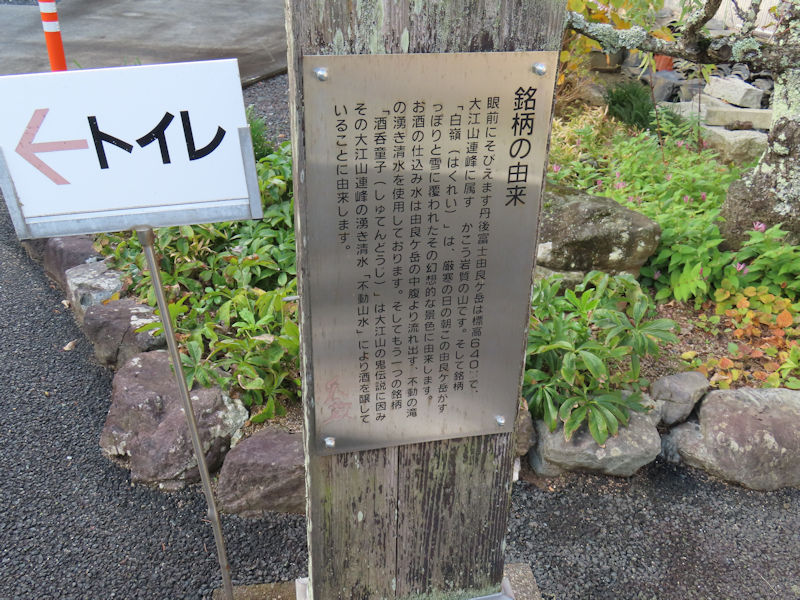 ←トイレ
銘柄の由来
眼前にそびえます丹後富士由良ケ岳は標高640㍍で、
大江山連峰に属す かこう岩質の山です。そして銘柄
「白嶺(はくれい)」は、厳寒の日の朝この由良ケ岳がす
っぽりと雪に覆われたその幻想的な景色に由来します。
お酒の仕込み水は由良ケ岳の中腹より流れ出す、不動の滝
の湧き清水を使用しております。そしてもう一つの銘柄
「酒呑童子(しゅてんどうじ)」は大江山の鬼伝説に因み
その大江山連峰の湧き清水「不動山水」により酒を醸して
いることに由来します。